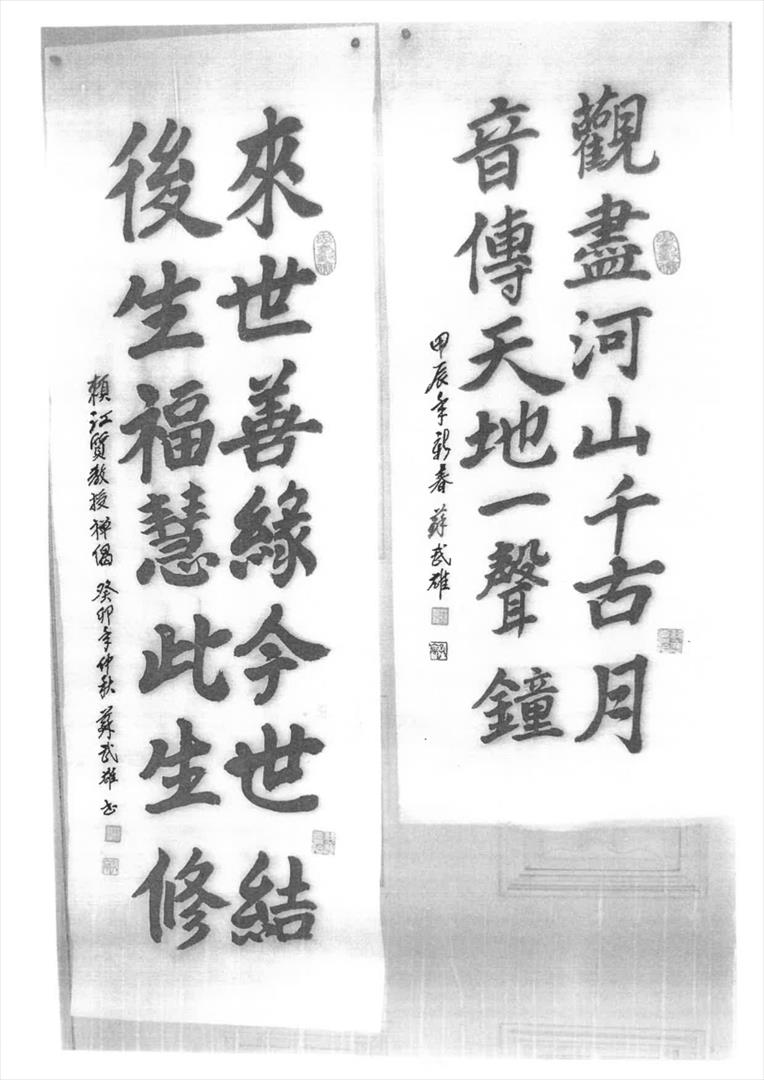 觀盡河山千古月
音傳天地一聲鐘
甲辰年新春 蘇武雄
來世善緣今世結
後生福慧此生修
賴江質教授禪偈 癸卯年仲秋 蘇武雄書